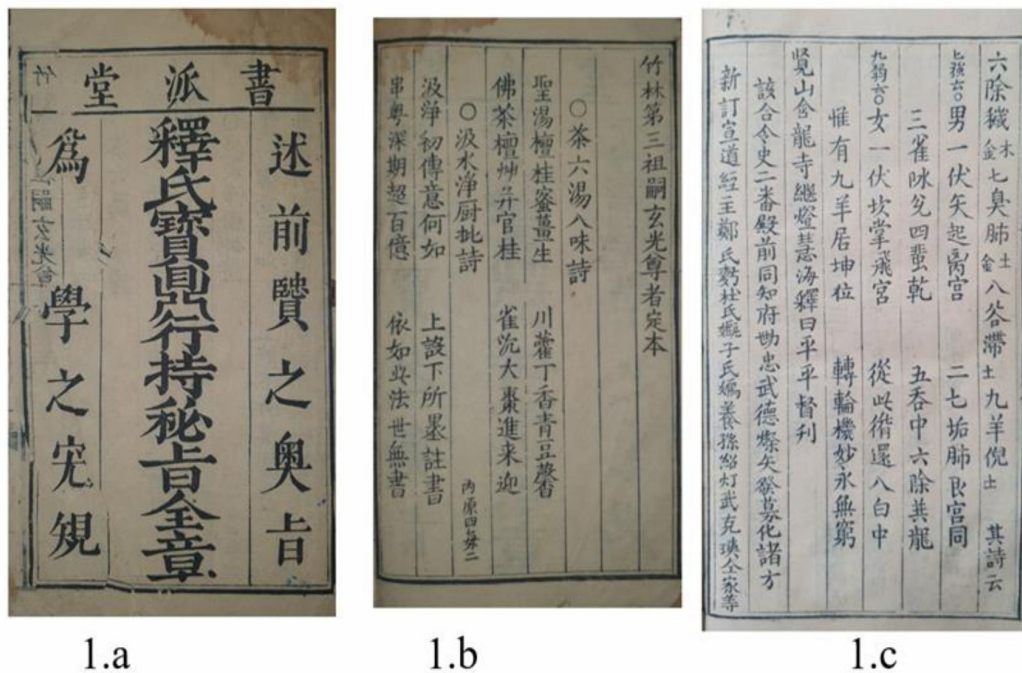 書派堂
述前賢之奧旨
釋氏寶鼎行持秘旨全章
爲學之宏規
1.a
竹林第三祖嗣玄光尊者定本
○茶六湯八味詩
聖湯檀桂蜜薑生 川藿丁香青豆馨
佛茶檀艸并官桂 雀沉大棗進来迎
○汲水淨厨批詩 內原四每二
汲淨初傳意何如 上設下所墨註書
串粵深期超百億 依如此法世無書
1.b
六除穢木金七臭肺土金八谷滯土九羊倪土 其詩云
男一伏矢起离宫 二七垢肺艮宫同
三雀阴兌四蜚乾 五吞中六除巽龍
女一伏坎掌飛宫 從此循還八白中
惟有九羊居坤位 轉輪機妙永無窮
覺山含龍寺繼燈慧海釋曰平平督刋
該合令史二番殿前同知府 忠武德 矢發募化諸方
新訂宣道經主鄭氏 杜氏 子氏 養孫 灯武克 仝家等
1.c